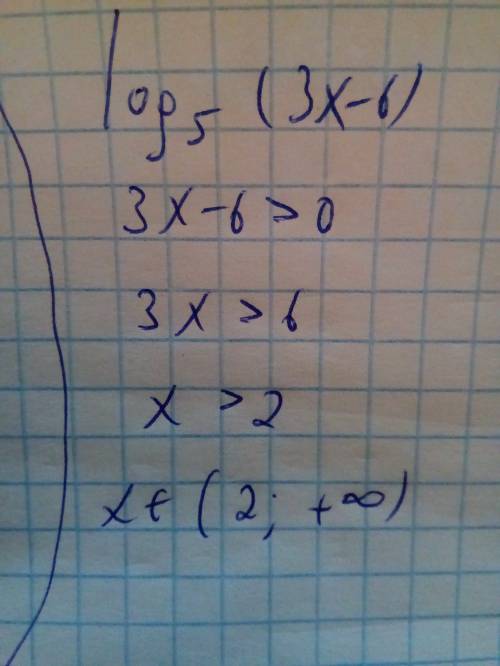 log₅ (3x-6)
3x-6>0
3x >6
x >2
x∈(2; +∞)